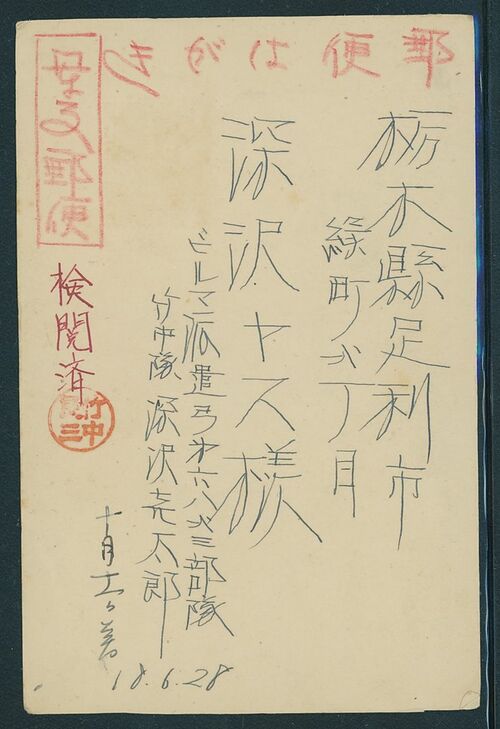 郵便はがき
栃木縣足利市
緑町弐丁目
深沢ヤス様
ビルマ派遣弓第六八弐三部隊
竹中隊 深沢太郎
軍事郵便
検閲済
竹中
三
十月 着
18.6.28